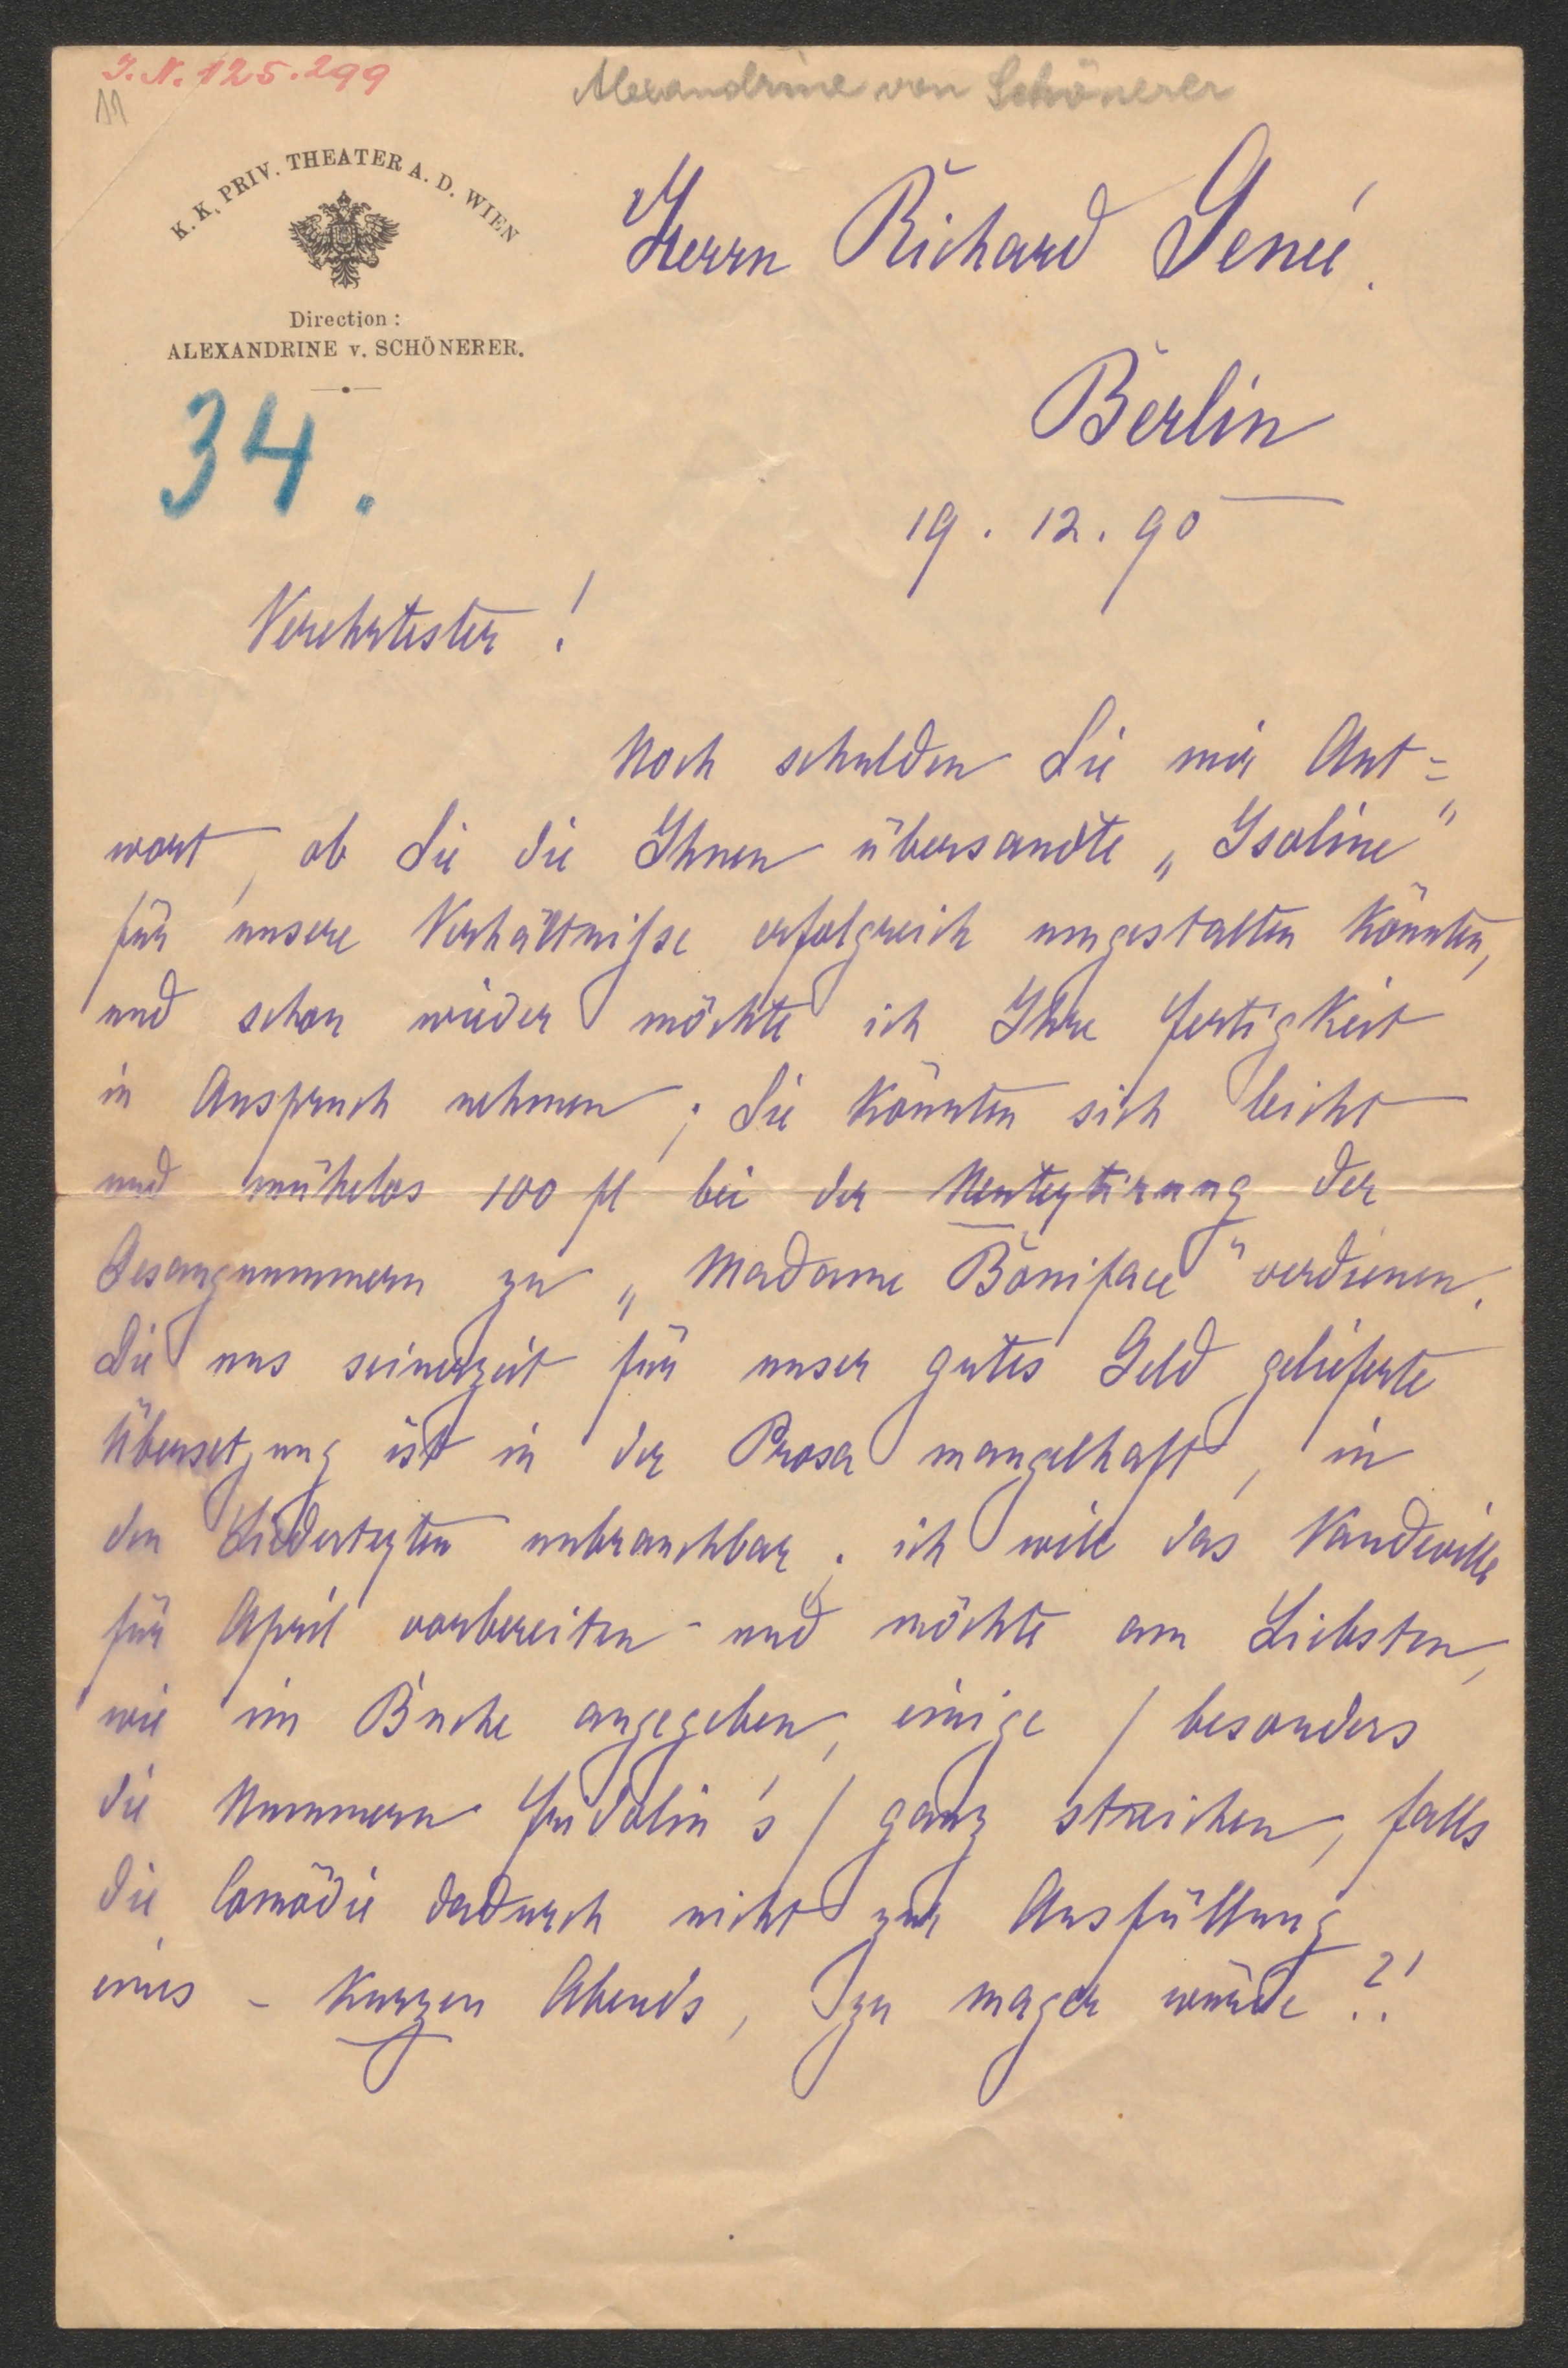 J. N. 125.299
11
Alexandrine von Schönerer
K. K. PRIV. THEATER A. D. WIEN
Direction:
ALEXANDRINE v. SCHÖNERER.
34.
Herrn Richard Geneé.
Berlin
19. 12. 90
Verehrtester!
Noch schulden Sie mir Ant=
wort, ob Sie die Ihnen übersandte „Isoline"
für unsere Verhältniße erfolgreich umgestalten könnten,
und schon wieder möchte ich Ihre Fertigkeit
in Anspruch nehmen; Sie könnten sich leicht
und mühelos 100 fl bei der Neutextirung der
Gesangnummern zu „Madame Boniface" verdienen.
Die uns seinerzeit für unser gutes Geld gelieferte
Übersetzung ist in der Prosa mangelhaft, in
den Liedertexten unbrauchbar; ich will das Vaudeville
für April vorbereiten - und möchte am Liebsten,
wie im Buche angegeben, einige / besonders
die Nummern Fridolin's / ganz streichen, falls
die Comödie dadurch nicht zur Ausfüllung
eines - kurzen Abends, zu mager würde?!